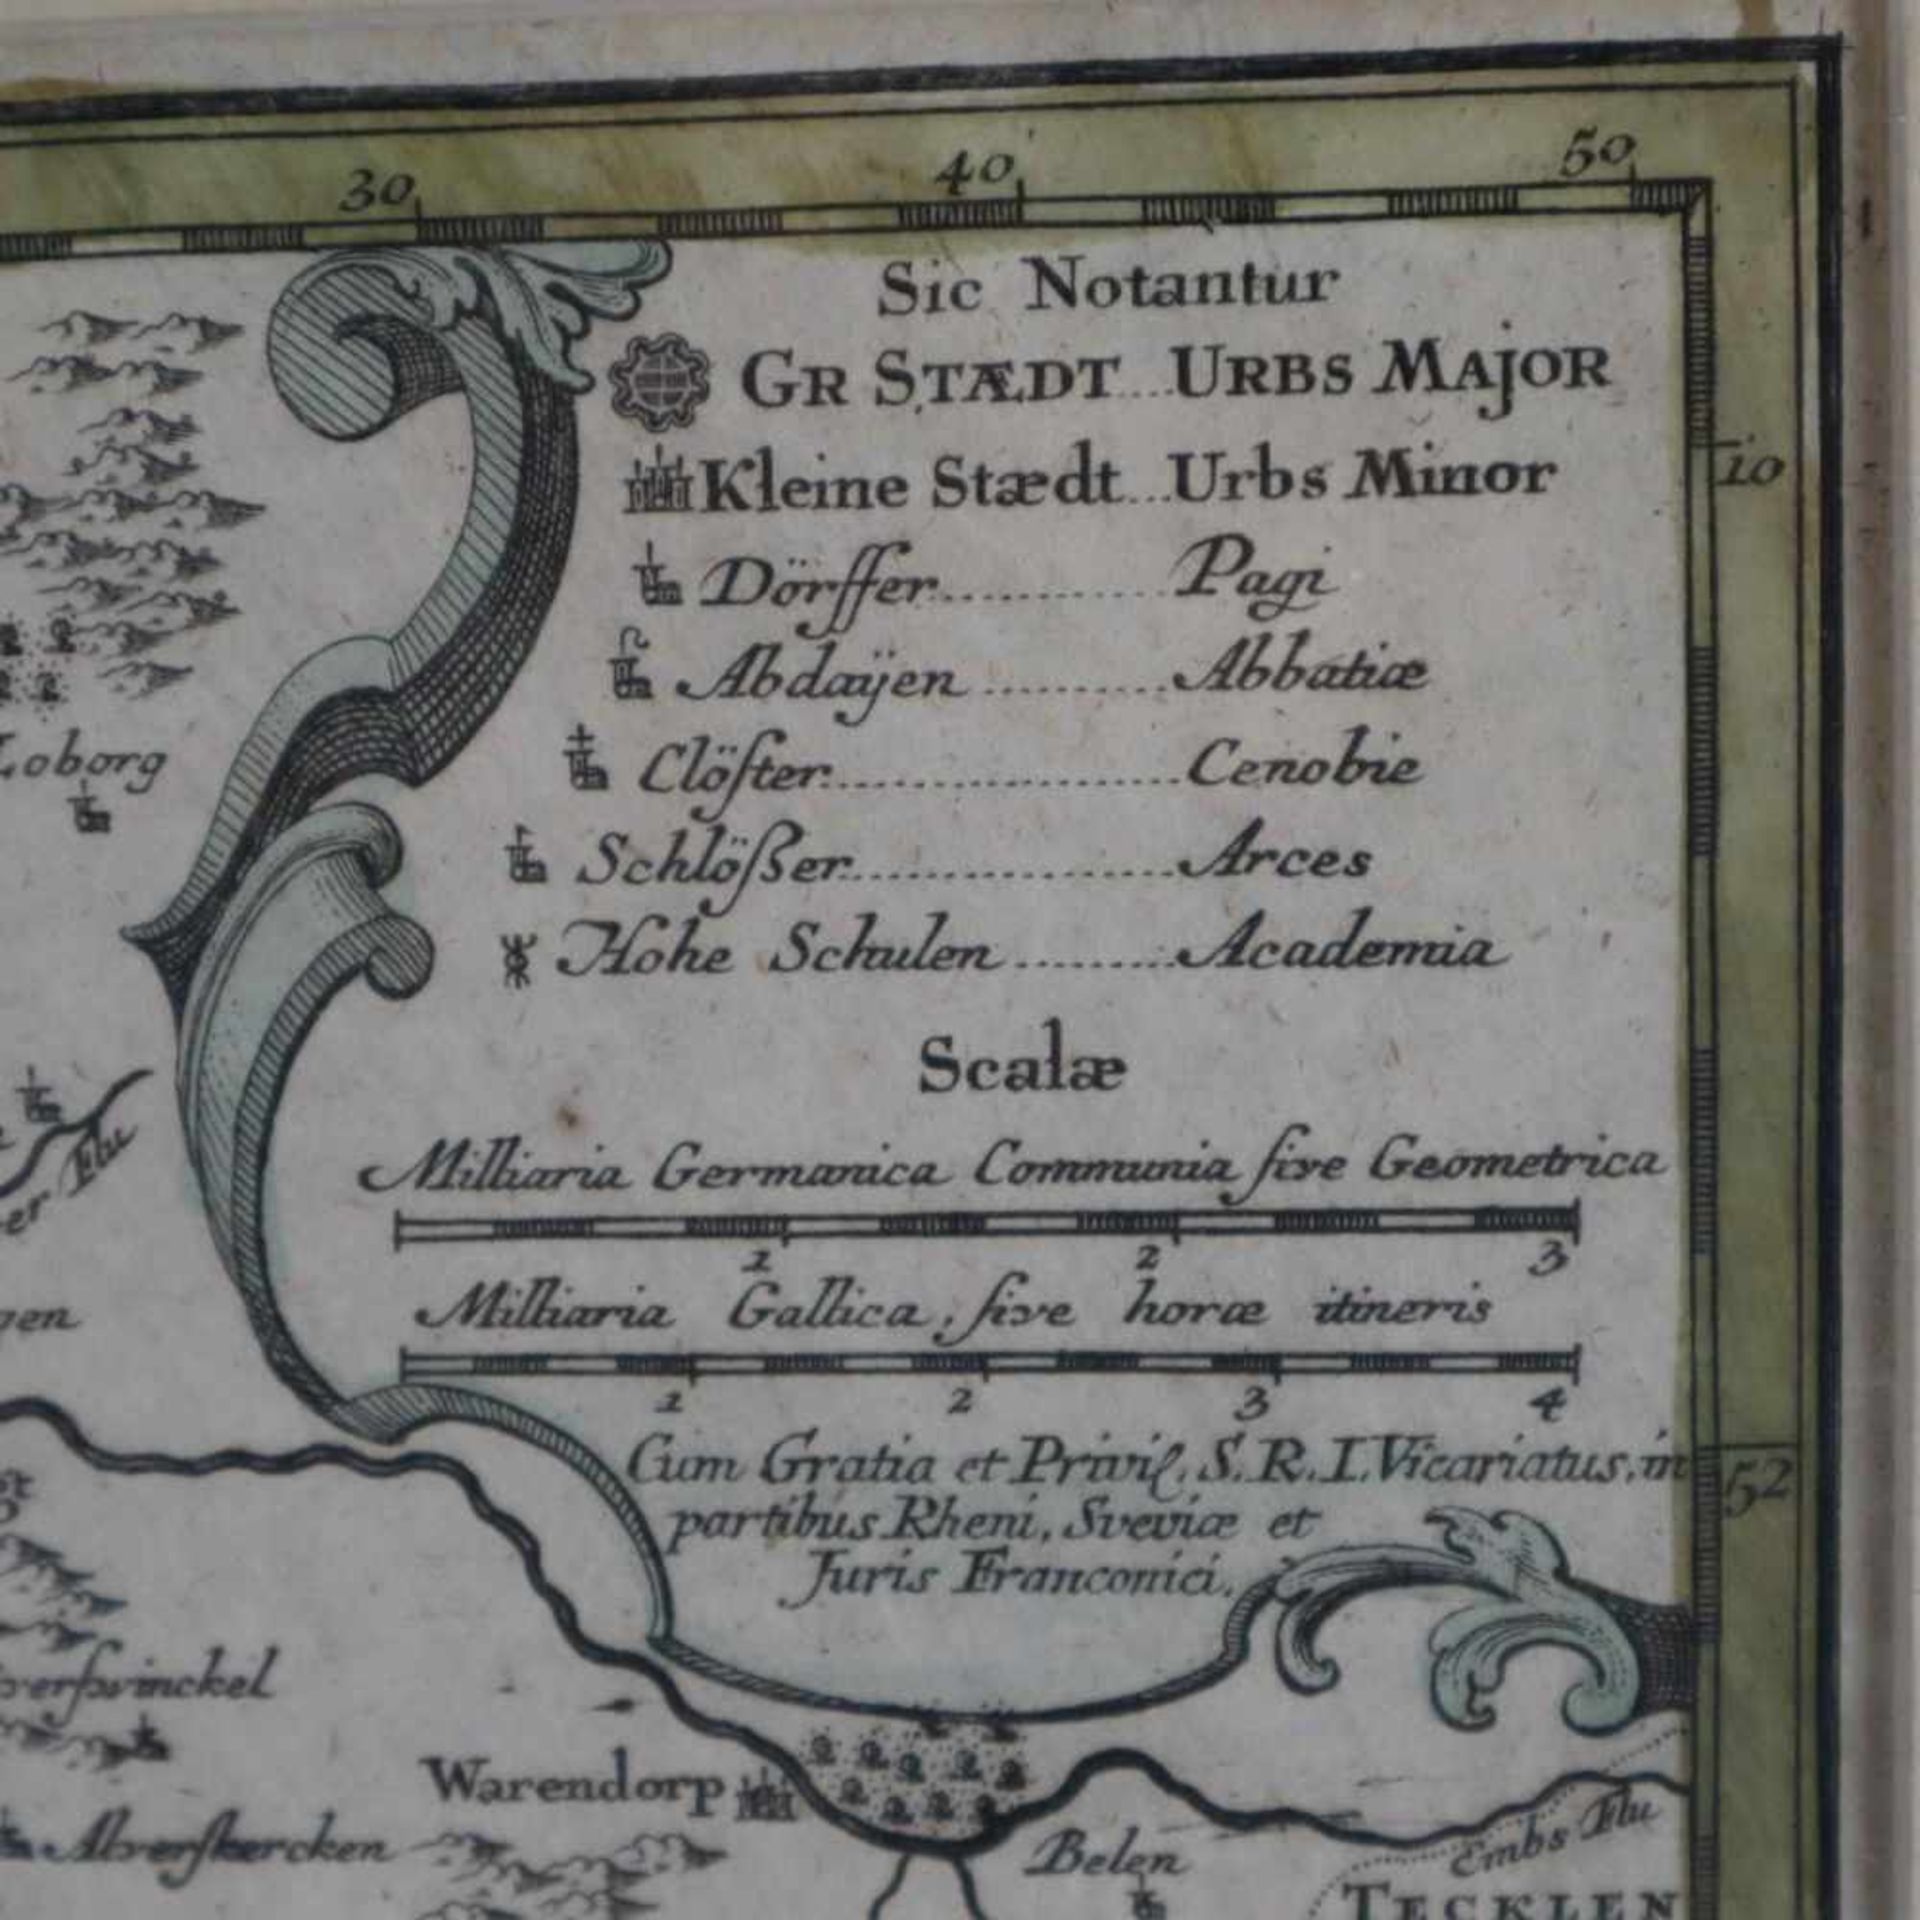 30 40 50
Sic Notantur
GR STÆDT...URBS MAJOR
Kleine Stædt...Urbs Minor
10
Dörffer............Pagi
Abdaÿen..........Abbatiæ
Loborg
Clöſter..................Cenobie
Schlößer.................Arces
Hohe Schulen.........Academia
Scalæ
Flu
Milliaria Germanica Communia ſive Geometrica
1 2 3
Milliaria Gallica, ſive horæ itineris
1 2 3 4
Cum Gratia et Privil. S. R. I. Vicariatus, in
52
partibus Rheni, Sveviæ et
Juris Franconici.
Warendorp
Alverſkercken
Belen
Embs Flu
TECKLEN